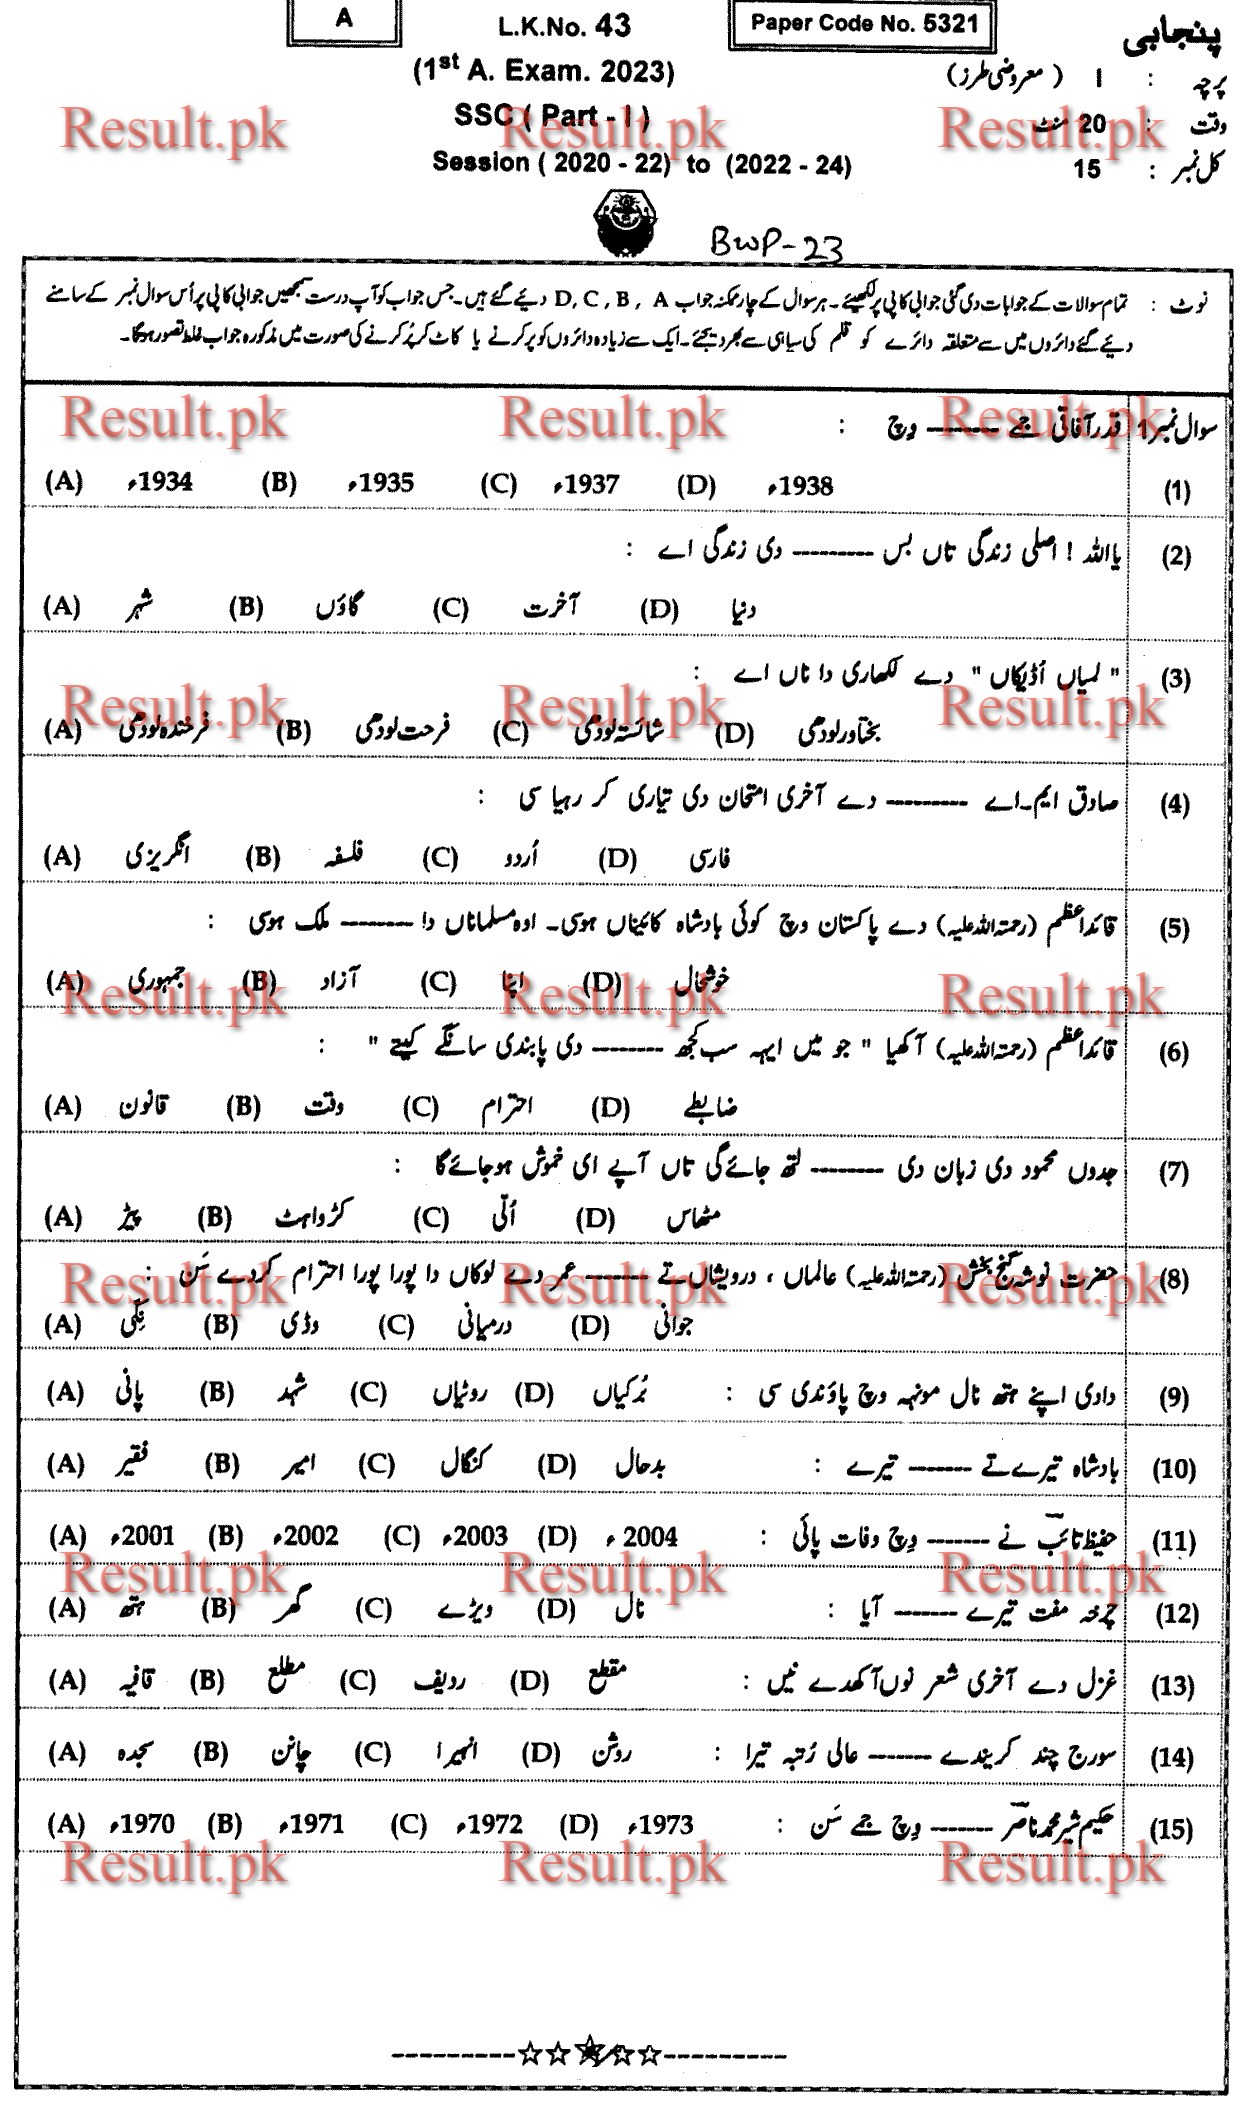 پنجابی
Paper Code No. 5321
L.K.No. 43
A
پرچہ : I ( معروضی طرز )
(1st A. Exam. 2023)
وقت : 20 منٹ
SSC ( Part - I )
کل نمبر : 15
Session ( 2020 - 22) to (2022 - 24)
BWP-23
نوٹ : تمام سوالات کے جوابات دی گئی جوابی کاپی پر لکھیئے۔ ہر سوال کے چار ممکنہ جواب D, C, B, A دیئے گئے ہیں۔ جس جواب کو آپ درست سمجھیں جوابی کاپی پر اُس سوال نمبر کے سامنے
دیئے گئے دائروں میں سے متعلقہ دائرے کو قلم کی سیاہی سے بھر دیجئے۔ ایک سے زیادہ دائروں کو پر کرنے یا کاٹ کر پُر کرنے کی صورت میں مذکورہ جواب غلط تصور ہوگا۔
سوال نمبر 1 قدر آفاقی جمے ------- وچ :
(1) (A) 1934ء (B) 1935ء (C) 1937ء (D) 1938ء
(2) یااللہ ! اصلی زندگی تاں بس ------- دی زندگی اے :
(A) شہر (B) گاؤں (C) آخرت (D) دنیا
(3) " لمیاں اُڈیکاں " دے لکھاری دا ناں اے :
(A) فرخندہ لودھی (B) فرحت لودھی (C) شائستہ لودھی (D) بختاور لودھی
(4) صادق ایم۔اے ------- دے آخری امتحان دی تیاری کر رہیا سی :
(A) انگریزی (B) فلسفہ (C) اُردو (D) فارسی
(5) قائداعظم (رحمتہ اللہ علیہ) دے پاکستان وچ کوئی بادشاہ کائیناں ہوسی۔ اوہ مسلماناں دا ------- ملک ہوسی :
(A) جمہوری (B) آزاد (C) اپنا (D) خوشحال
(6) قائداعظم (رحمتہ اللہ علیہ) آکھیا " جو میں ایہہ سب کجھ ------- دی پابندی سانگے کیتے " :
(A) قانون (B) وقت (C) احترام (D) ضابطے
(7) جدوں محمود دی زبان دی ------- لتھ جائے گی تاں آپے ای خموش ہو جائے گا :
(A) پیڑ (B) کڑواہٹ (C) اُلّی (D) مٹھاس
(8) حضرت نوشہ گنج بخش (رحمتہ اللہ علیہ) عالماں ، درویشاں تے ------- عمر دے لوکاں دا پورا پورا احترام کردے سَن :
(A) نِکی (B) وڈی (C) درمیانی (D) جوانی
(9) دادی اپنے ہتھ نال مونہہ وچ پاؤندی سی : (A) پانی (B) شہد (C) روٹیاں (D) بُرکیاں
(10) بادشاہ تیرے تے ------- تیرے : (A) فقیر (B) امیر (C) کنگال (D) بدحال
(11) حفیظ تائب نے ------- وچ وفات پائی : (A) 2001ء (B) 2002ء (C) 2003ء (D) 2004ء
(12) چرخہ مفت تیرے ------- آیا : (A) ہتھ (B) گھر (C) ویڑے (D) نال
(13) غزل دے آخری شعر نوں آکھدے نیں : (A) قافیہ (B) مطلع (C) ردیف (D) مقطع
(14) سورج چند کریندے ------- عالی رُتبہ تیرا : (A) سجدہ (B) چانن (C) انھیرا (D) روشن
(15) حکیم شیر محمد ناصر ------- وچ جمے سَن : (A) 1970ء (B) 1971ء (C) 1972ء (D) 1973ء
Result.pk